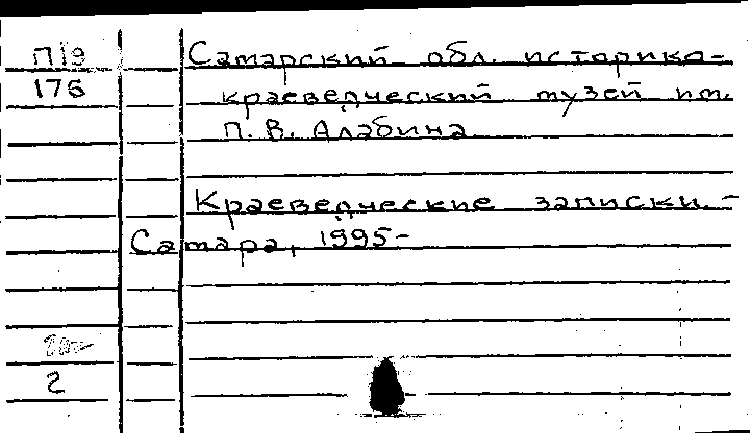 П19
176
Самарский обл. историко-
краеведческий музей им.
П. В. Алабина
Краеведческие записки. -
Самара, 1995-
2